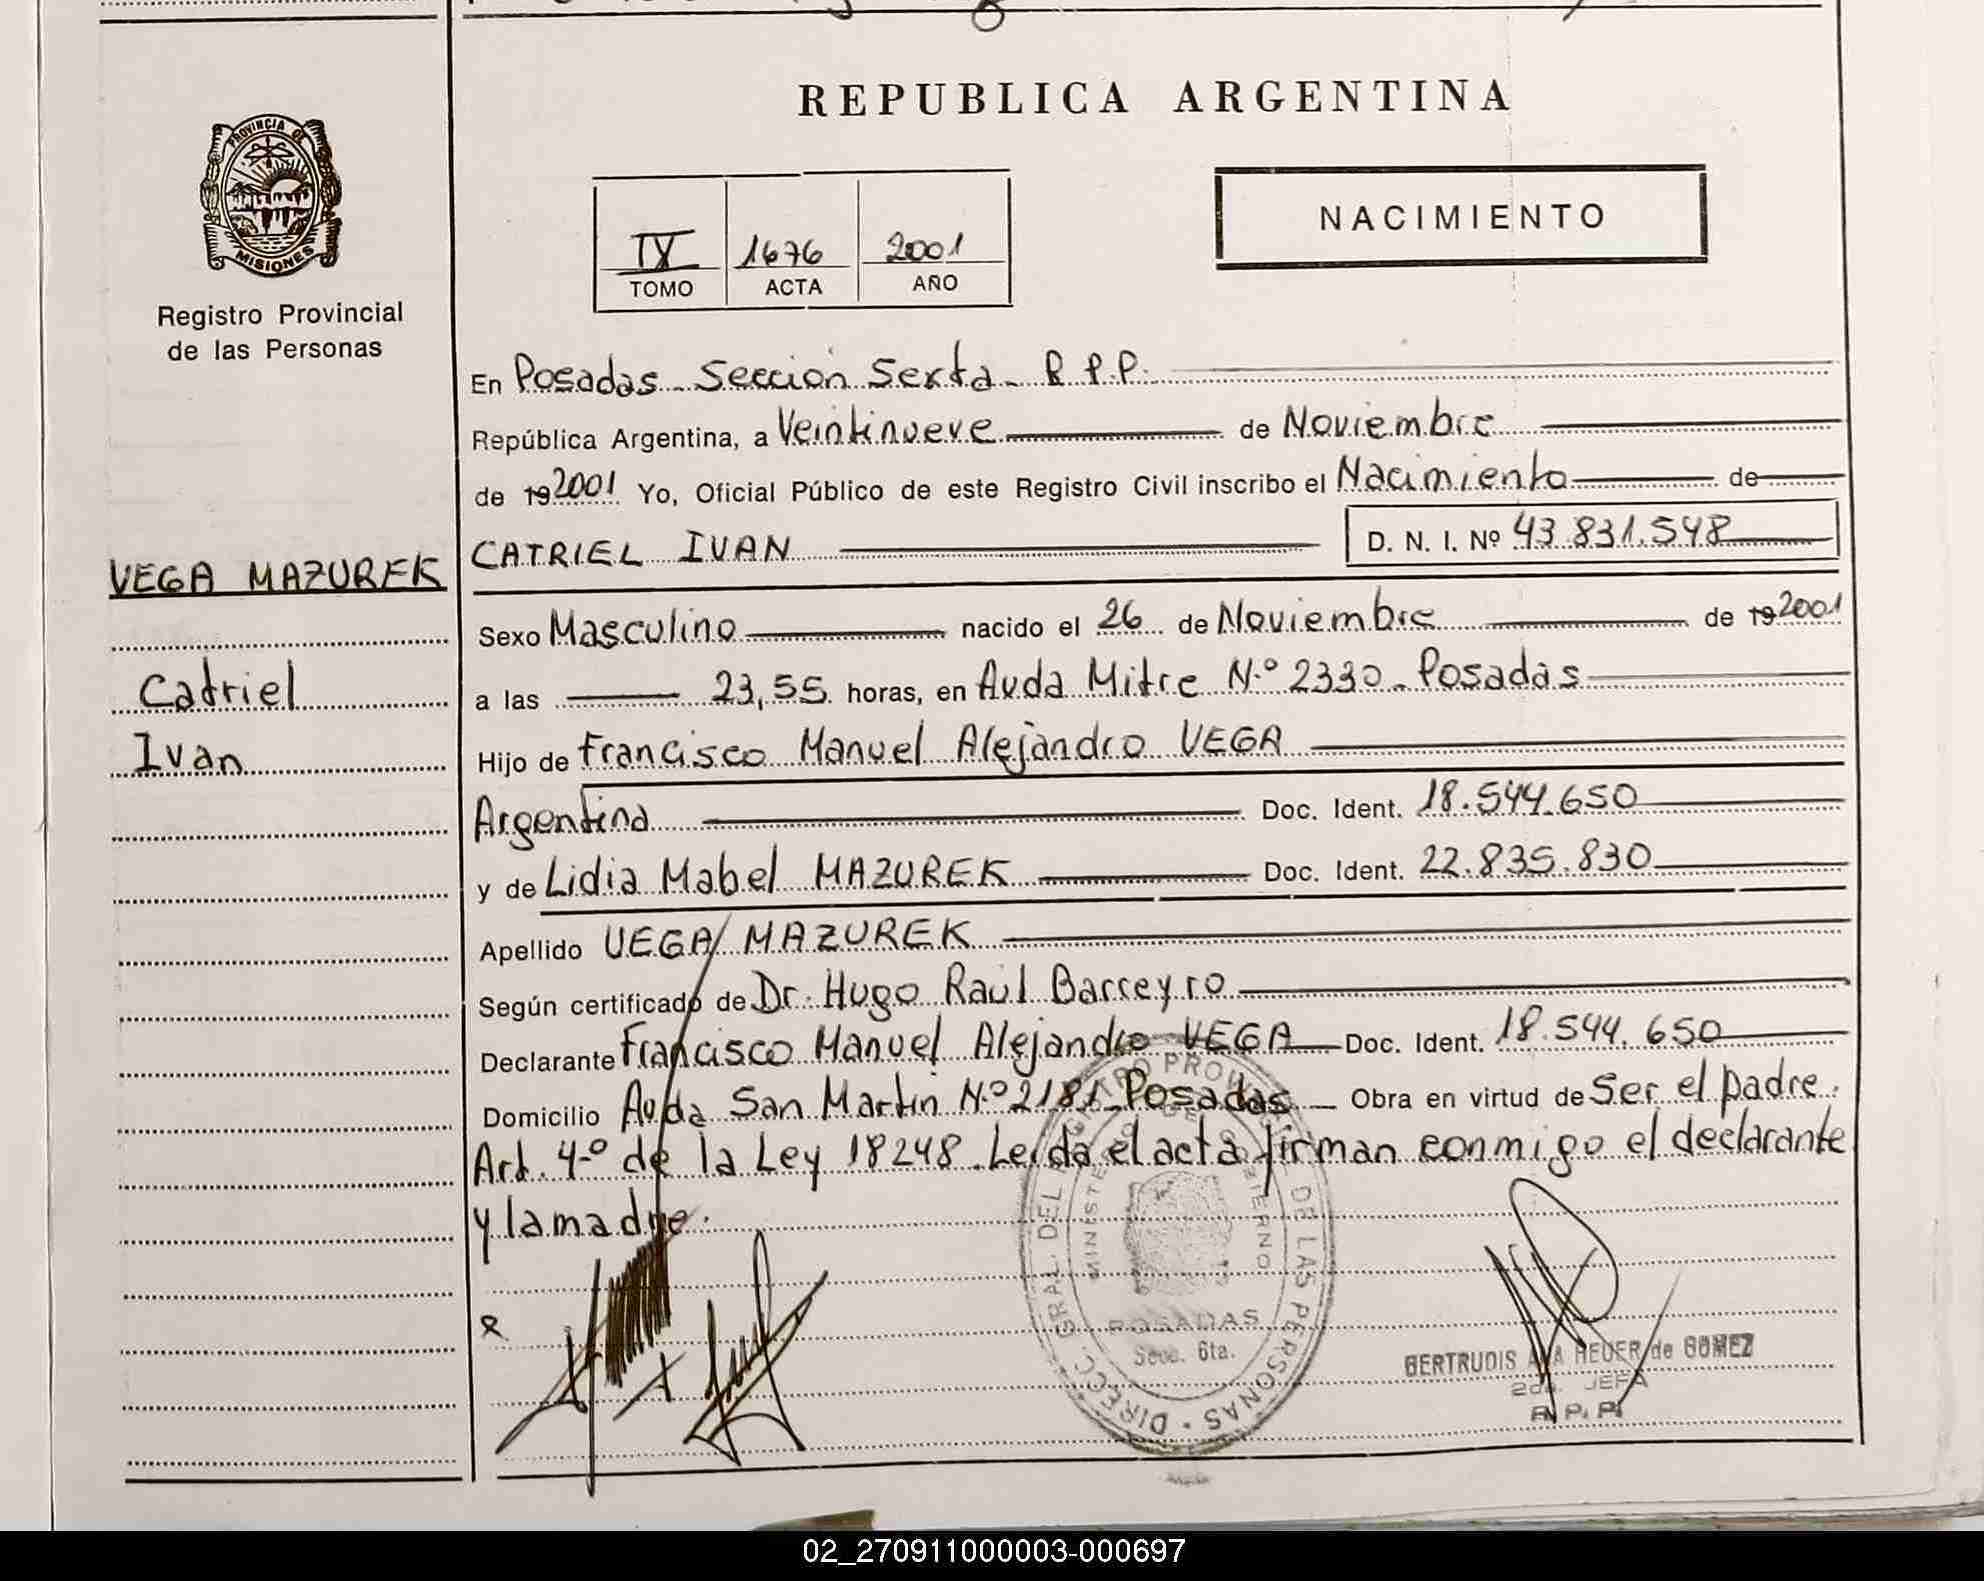 REPUBLICA ARGENTINA
PROVINCIA DE
MISIONES
Registro Provincial
de las Personas
IX 1676 2001
TOMO ACTA AÑO
NACIMIENTO
En Posadas - Sección Sexta - R.P.P.
República Argentina, a Veintinueve de Noviembre
de 19 2001 Yo, Oficial Público de este Registro Civil inscribo el Nacimiento de
VEGA MAZUREK
CATRIEL IVAN D. N. I. Nº 43.831.548
Sexo Masculino nacido el 26 de Noviembre de 19 2001
Catriel
a las 23,55 horas, en Avda Mitre N.º 2330 - Posadas
Ivan
Hijo de Francisco Manuel Alejandro VEGA
Argentina Doc. Ident. 18.544.650
y de Lidia Mabel MAZUREK Doc. Ident. 22.835.830
Apellido VEGA/MAZUREK
Según certificado de Dr. Hugo Raúl Barreyro
Declarante Francisco Manuel Alejandro VEGA Doc. Ident. 18.544.650
Domicilio Avda San Martin N.º 2181 - Posadas - Obra en virtud de Ser el padre.
Art. 4.º de la Ley 18248. Leida el acta firman conmigo el declarante
y la madre.
DIRECC. GRAL. DEL REGISTRO PROVINCIAL DE LAS PERSONAS
MINISTERIO DE GOBIERNO
POSADAS
Secc. 6ta.
GERTRUDIS ANA HEUER de GOMEZ
2da. JEFA
R. P. P.
02_270911000003-000697